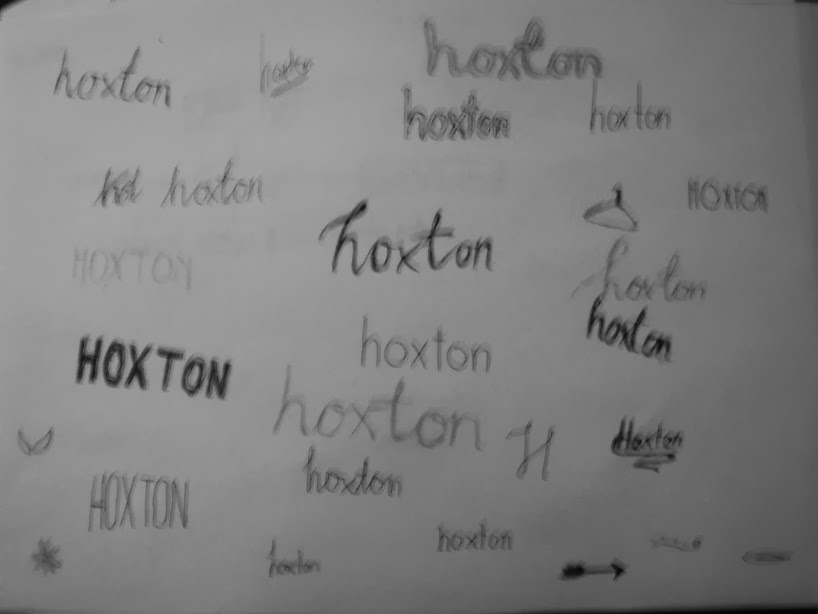 hoxton
hoxton
hoxton
hoxton
hoxton
hoxton
HOXTON
hoxton
HOXTON
hoxton
hoxton
HOXTON
hoxton
hoxton
H
Hoxton
hoxton
HOXTON
hoxton
hoxton